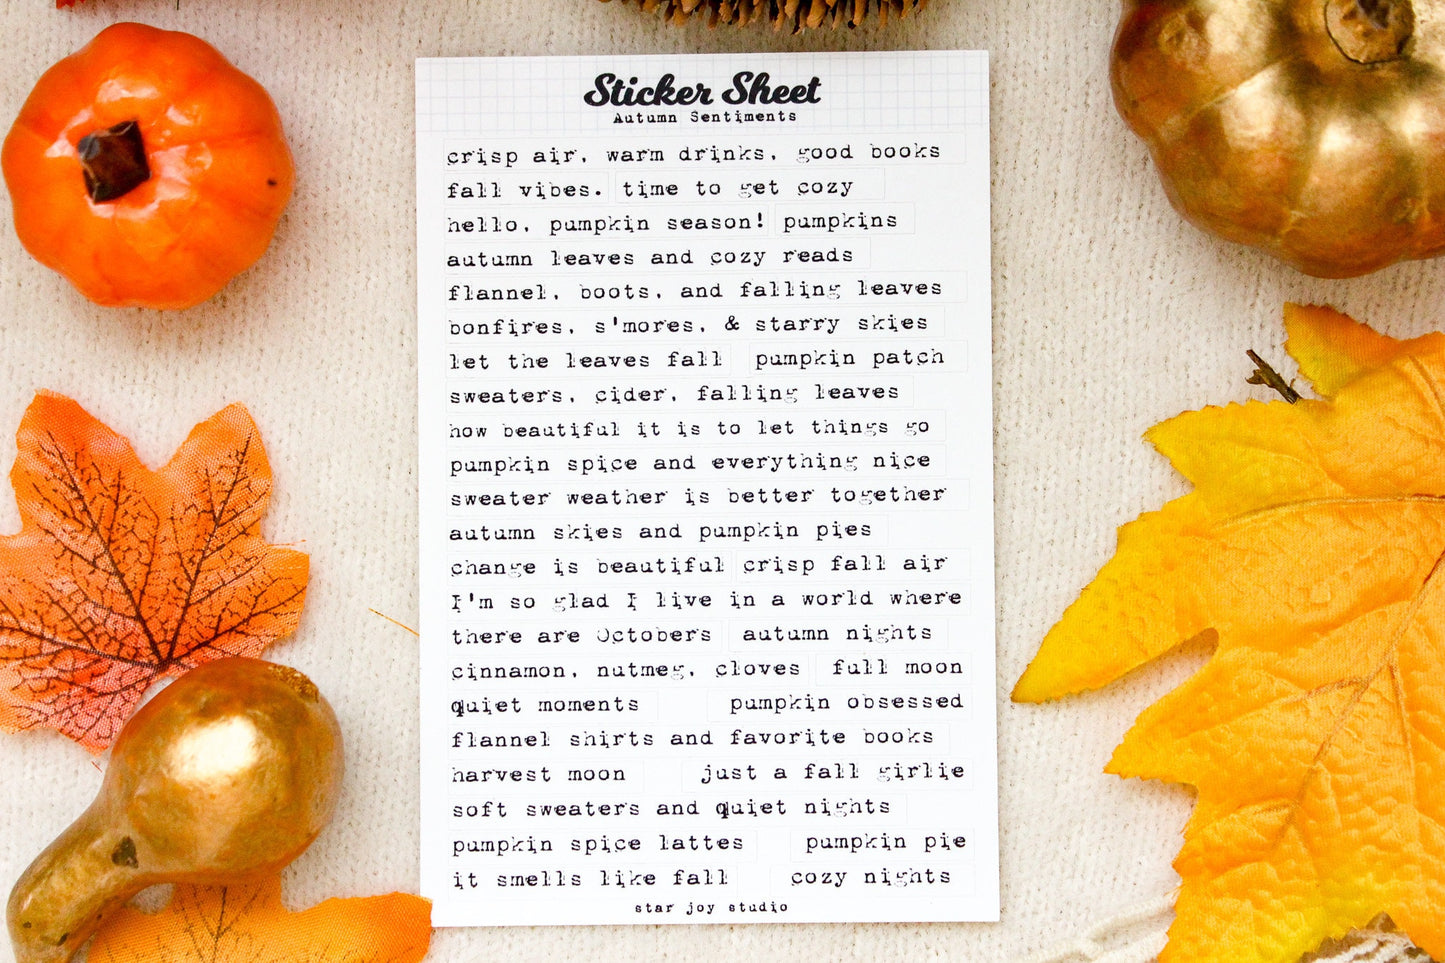 Sticker Sheet
Autumn Sentiments
crisp air, warm drinks, good books
fall vibes. time to get cozy
hello, pumpkin season! pumpkins
autumn leaves and cozy reads
flannel, boots, and falling leaves
bonfires, s'mores, & starry skies
let the leaves fall pumpkin patch
sweaters, cider, falling leaves
how beautiful it is to let things go
pumpkin spice and everything nice
sweater weather is better together
autumn skies and pumpkin pies
change is beautiful crisp fall air
I'm so glad I live in a world where
there are Octobers autumn nights
cinnamon, nutmeg, cloves full moon
quiet moments pumpkin obsessed
flannel shirts and favorite books
harvest moon just a fall girlie
soft sweaters and quiet nights
pumpkin spice lattes pumpkin pie
it smells like fall cozy nights
star joy studio